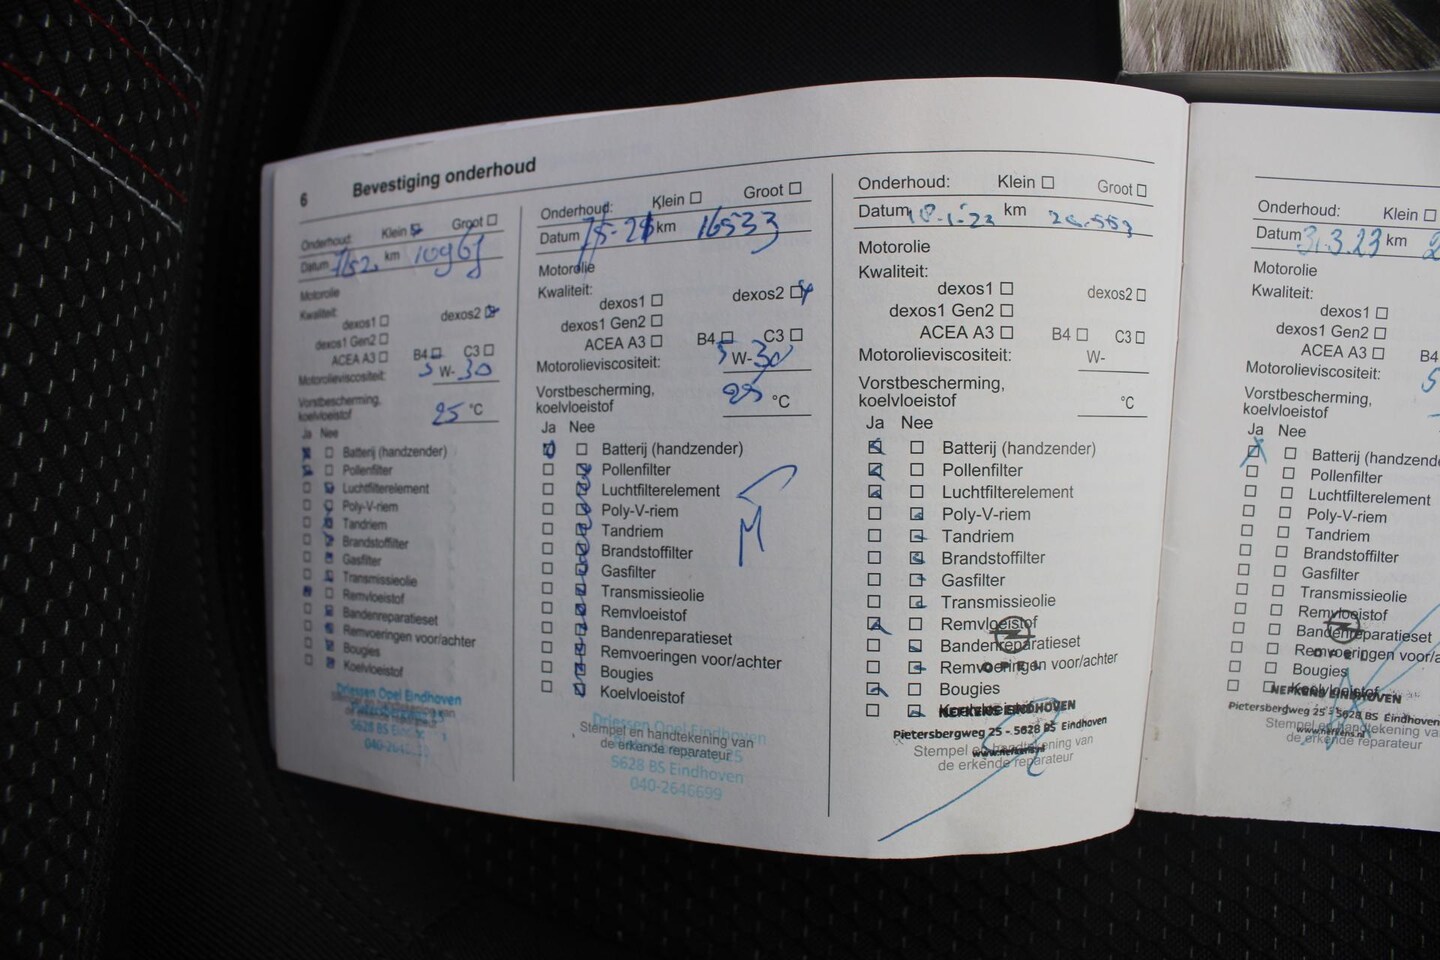 6 Bevestiging onderhoud
Onderhoud: Klein Groot
Datum km 10967
Motorolie
Kwaliteit:
dexos1 dexos2
dexos1 Gen2
ACEA A3 B4 C3
Motorolieviscositeit: 5 W- 30
Vorstbescherming,
koelvloeistof 25 °C
Ja Nee
Batterij (handzender)
Pollenfilter
Luchtfilterelement
Poly-V-riem
Tandriem
Brandstoffilter
Gasfilter
Transmissieolie
Remvloeistof
Bandenreparatieset
Remvoeringen voor/achter
Bougies
Koelvloeistof
Driessen Opel Eindhoven
Stempel en handtekening van
de erkende reparateur
5628 BS
Onderhoud: Klein Groot
Datum km 16533
Motorolie
Kwaliteit:
dexos1 dexos2
dexos1 Gen2
ACEA A3 B4 C3
Motorolieviscositeit: 5 W- 30
Vorstbescherming,
koelvloeistof 25 °C
Ja Nee
Batterij (handzender)
Pollenfilter
Luchtfilterelement
Poly-V-riem
Tandriem
Brandstoffilter
Gasfilter
Transmissieolie
Remvloeistof
Bandenreparatieset
Remvoeringen voor/achter
Bougies
Koelvloeistof
Driessen Opel Eindhoven
Stempel en handtekening van
de erkende reparateur
5628 BS Eindhoven
040-2646699
Onderhoud: Klein Groot
Datum km
Motorolie
Kwaliteit:
dexos1 dexos2
dexos1 Gen2
ACEA A3 B4 C3
Motorolieviscositeit: W-
Vorstbescherming,
koelvloeistof °C
Ja Nee
Batterij (handzender)
Pollenfilter
Luchtfilterelement
Poly-V-riem
Tandriem
Brandstoffilter
Gasfilter
Transmissieolie
Remvloeistof
Bandenreparatieset
Remvoeringen voor/achter
OPEL
Bougies
NEFKENS EINDHOVEN
Pietersbergweg 25 - 5628 BS Eindhoven
www.nefkens.nl
Stempel en handtekening van
de erkende reparateur
Onderhoud: Klein
Datum 31.3.23 km
Motorolie
Kwaliteit:
dexos1
dexos1 Gen2
ACEA A3 B4
Motorolieviscositeit: 5
Vorstbescherming,
koelvloeistof
Ja Nee
Batterij
Pollenfilter
Luchtfilterelement
Poly-V-riem
Tandriem
Brandstoffilter
Gasfilter
Transmissieolie
Remvloeistof
Bandenreparatieset
Remvoeringen
OPEL
Bougies
Koelvloeistof
NEFKENS EINDHOVEN
Pietersbergweg 25 - 5628 BS Eindhoven
www.nefkens.nl
Stempel en handtekening van
de erkende reparateur